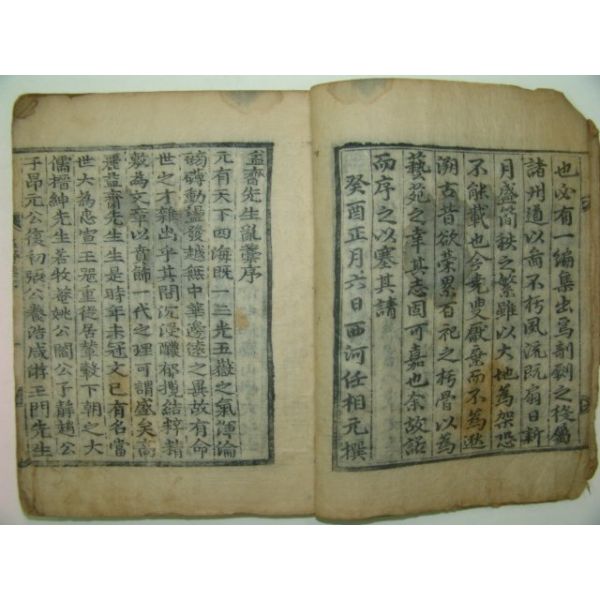 也必有一編集出爲剞劂之役屬
諸州道以而不朽風流旣扇日新
月盛簡秩之繁雖以大地爲架恐
不能載也今堯叟厥棄而不爲逖
溯古昔欲榮累百祀之朽骨以爲
藝苑之幸其志固可嘉也余故話
而序之以塞其請
癸酉正月六日西河任相元撰
益齋先生亂藁序
元有天下四海旣一三光五嶽之氣渾淪
磅礴動盪發越無中華邊遠之異故有命
世之才雜出乎其間沉浸醲郁攬結粹精
敷爲文章以賁飾一代之理可謂盛矣高
麗益齋先生生是時年未冠文已有名當
世大爲忠宣王器重從居輦轂下朝之大
儒搢紳先生若牧菴姚公閻公子靜趙公
子昻元公復初張公養浩咸游王門先生